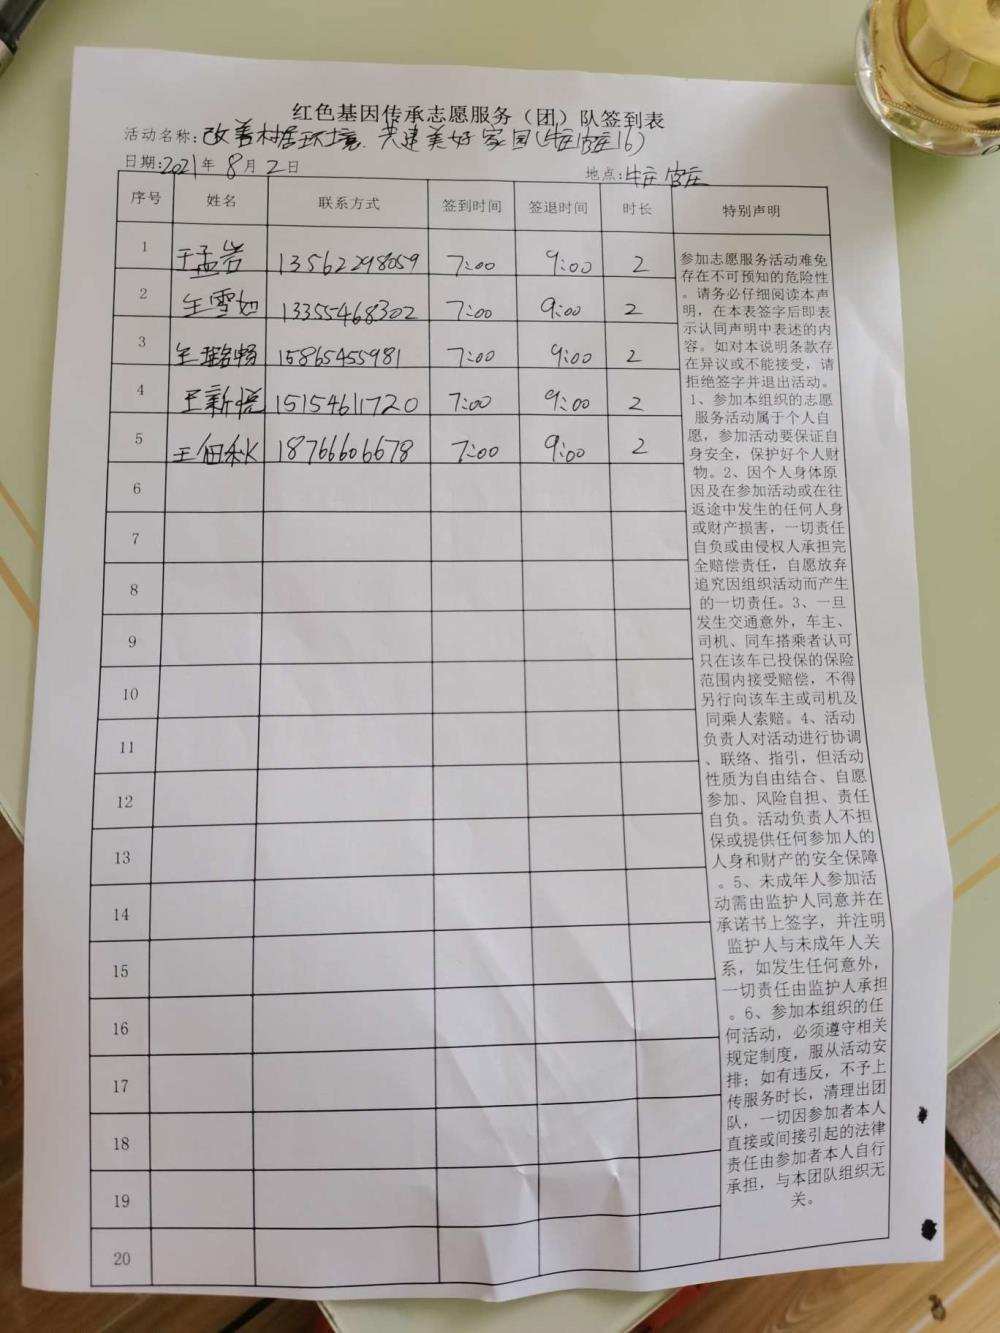 红色基因传承志愿服务（团）队签到表
活动名称：改善村居环境.共建美好家园(牛庄官庄16)
日期：2021年8月2日 地点：牛庄官庄
序号 姓名 联系方式 签到时间 签退时间 时长 特别声明
1 王孟岩 13562298059 7:00 9:00 2
2 王雪如 13355468302 7:00 9:00 2
3 王璐畅 15865455981 7:00 9:00 2
4 王新悦 15154611720 7:00 9:00 2
5 王佃秋 18766606678 7:00 9:00 2
6
7
8
9
10
11
12
13
14
15
16
17
18
19
20
参加志愿服务活动难免
存在不可预知的危险性
。请务必仔细阅读本声
明，在本表签字后即表
示认同声明中表述的内
容。如对本说明条款存
在异议或不能接受，请
拒绝签字并退出活动。
1、参加本组织的志愿
服务活动属于个人自
愿，参加活动要保证自
身安全，保护好个人财
物。2、因个人身体原
因及在参加活动或在往
返途中发生的任何人身
或财产损害，一切责任
自负或由侵权人承担完
全赔偿责任，自愿放弃
追究因组织活动而产生
的一切责任。3、一旦
发生交通意外，车主、
司机、同车搭乘者认可
只在该车已投保的保险
范围内接受赔偿，不得
另行向该车主或司机及
同乘人索赔。4、活动
负责人对活动进行协调
、联络、指引，但活动
性质为自由结合、自愿
参加、风险自担、责任
自负。活动负责人不担
保或提供任何参加人的
人身和财产的安全保障
。5、未成年人参加活
动需由监护人同意并在
承诺书上签字，并注明
监护人与未成年人关
系，如发生任何意外，
一切责任由监护人承担
。6、参加本组织的任
何活动，必须遵守相关
规定制度，服从活动安
排；如有违反，不予上
传服务时长，清理出团
队，一切因参加者本人
直接或间接引起的法律
责任由参加者本人自行
承担，与本团队组织无
关。